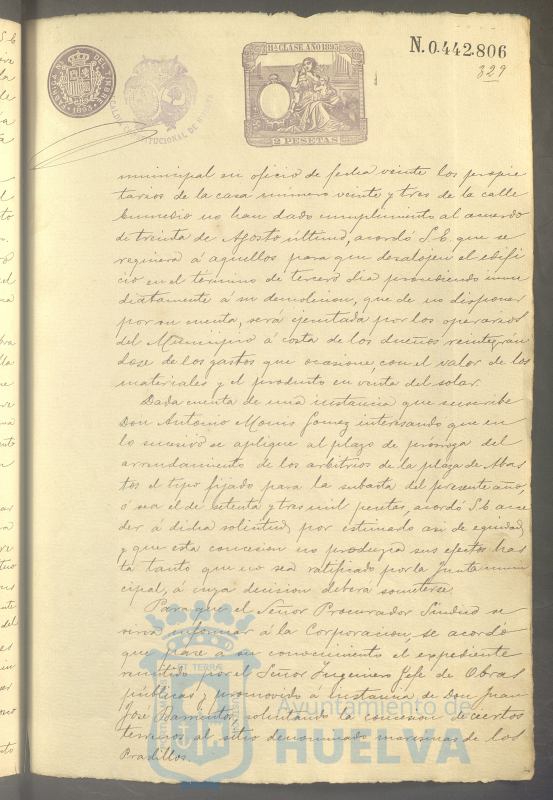 11ª CLASE AÑO 1895
N.0.442.806
329
2 PESETAS
municipal en oficio de fecha veinte los propie
tarios de la casa número veinte y tres de la calle
no han dado cumplimiento al acuerdo
de treinta de Agosto último, acordó S.E. que se
requiera á aquellos para que desalojen el edifi
cio en el termino de tercero dia procediendo inme
diatamente á su demolicion, que de no disponer
por su cuenta, será ejecutada por los operarios
del Municipio á costa de los dueños reintegrán
dose de los gastos que ocasione, con el valor de los
materiales y el producto en venta del solar.
Dada cuenta de una instancia que suscribe
Don Antonio Gomez interesando que en
lo sucesivo se aplique al plazo de prórroga del
arrendamiento de los arbitrios de la plaza de Abas
tos el tipo fijado para la subasta del presente año,
ó sea el de setenta y tres mil pesetas, acordó S.E. acce
der á dicha solicitud, por estimarlo asi de equidad,
y que esta concesion no produzca sus efectos has
ta tanto que no sea ratificado por la Junta muni
cipal, á cuya decision deberá someterse.
Para que el Señor Procurador Sindico se
sirva informar á la Corporacion, se acordó
que pase a su conocimiento el expediente
remitido por el Señor Ingeniero Jefe de Obras
públicas y promovido á instancia de Don Juan
José Barrientos, solicitando la concesion de ciertos
terrenos al sitio denominado marismas de los
Pradillos.
Ayuntamiento de
HUELVA